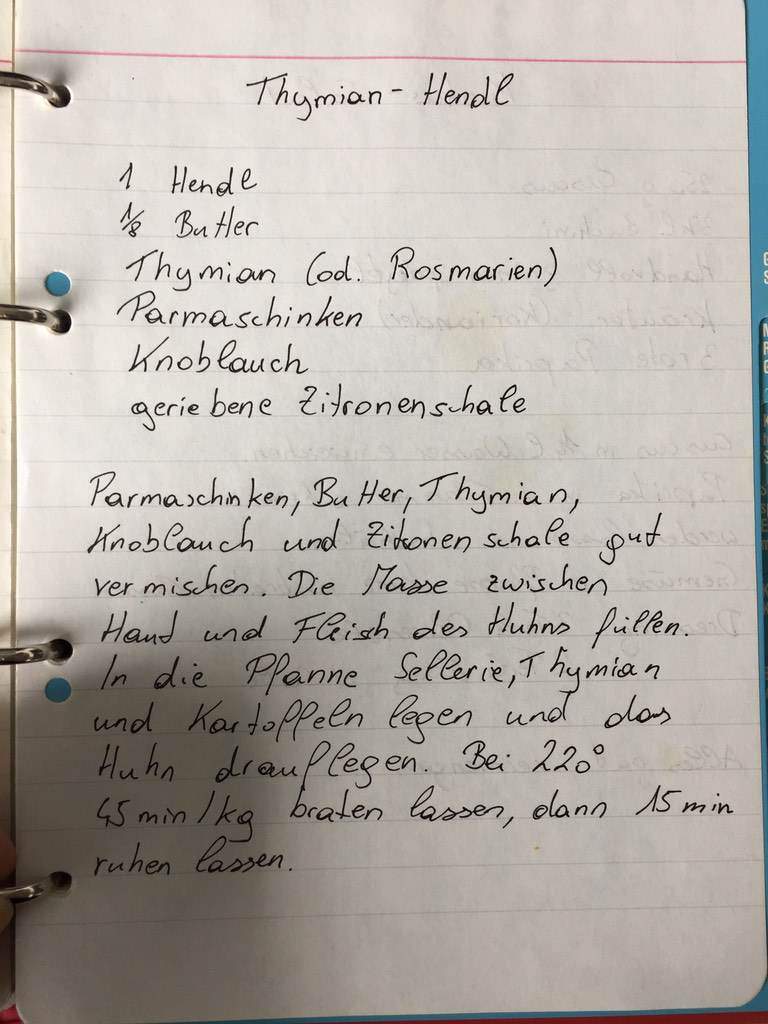 Thymian - Hendl
1 Hendl
1/8 Butter
Thymian (od. Rosmarien)
Parmaschinken
Knoblauch
geriebene Zitronenschale
Parmaschinken, Butter, Thymian,
Knoblauch und Zitronenschale gut
vermischen. Die Masse zwischen
Haut und Fleisch des Huhns füllen.
In die Pfanne Sellerie, Thymian
und Kartoffeln legen und das
Huhn drauflegen. Bei 220°
45 min/kg braten lassen, dann 15 min
ruhen lassen.